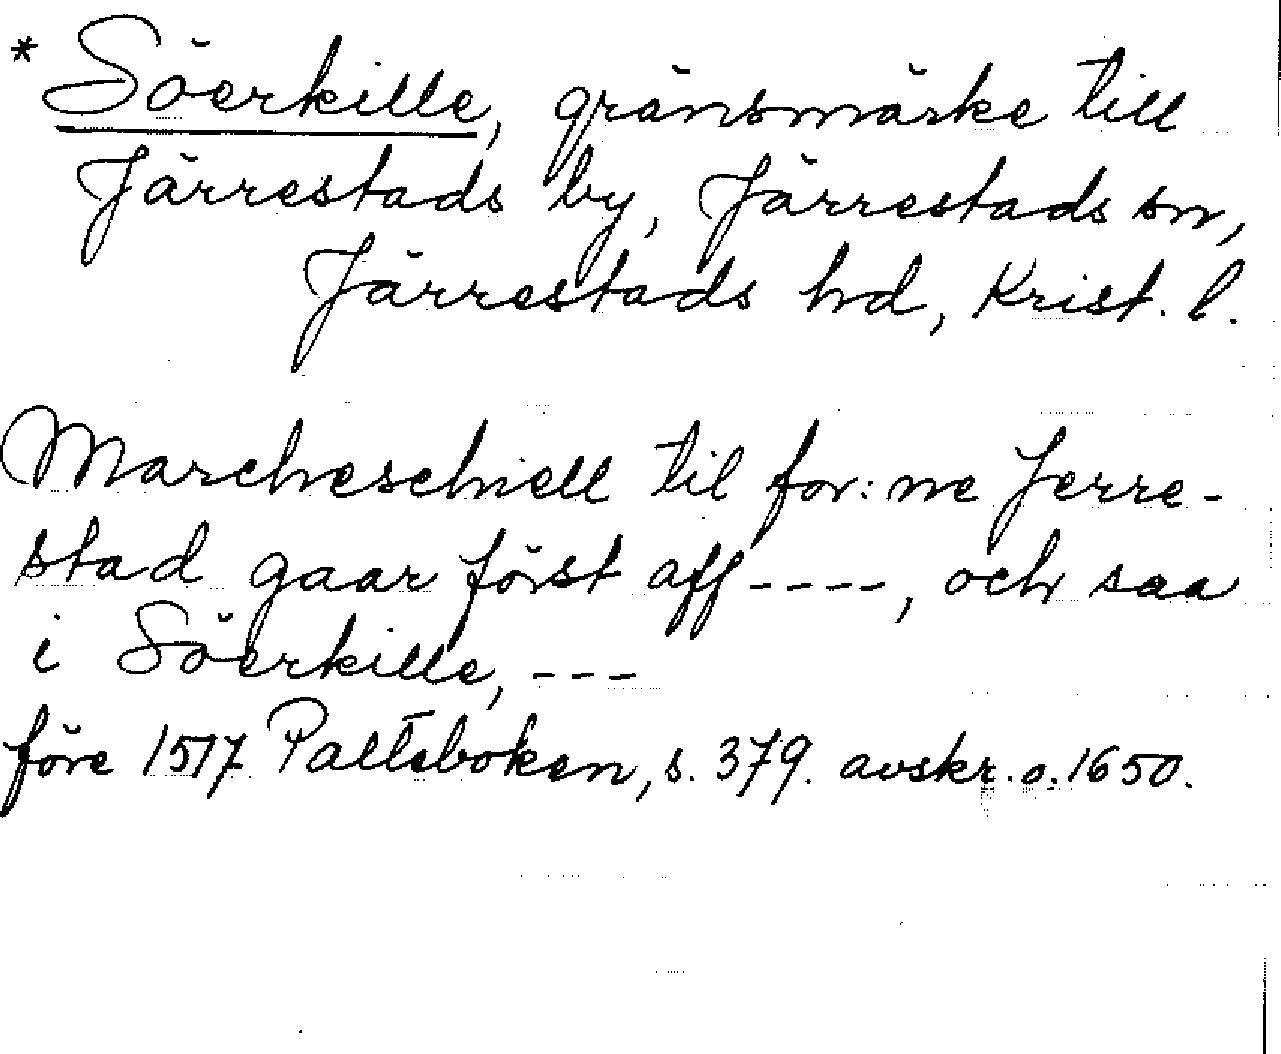 * Söerkille, gränsmärke till
Järrestads by, Järrestads sn,
Järrestads hd, Krist. l.
Marcheschiell til for:ne Jerre-
stad gaar först aff ----, och saa
i Söerkille, ---
före 1517 Palteboken, s. 379. avskr. o. 1650.